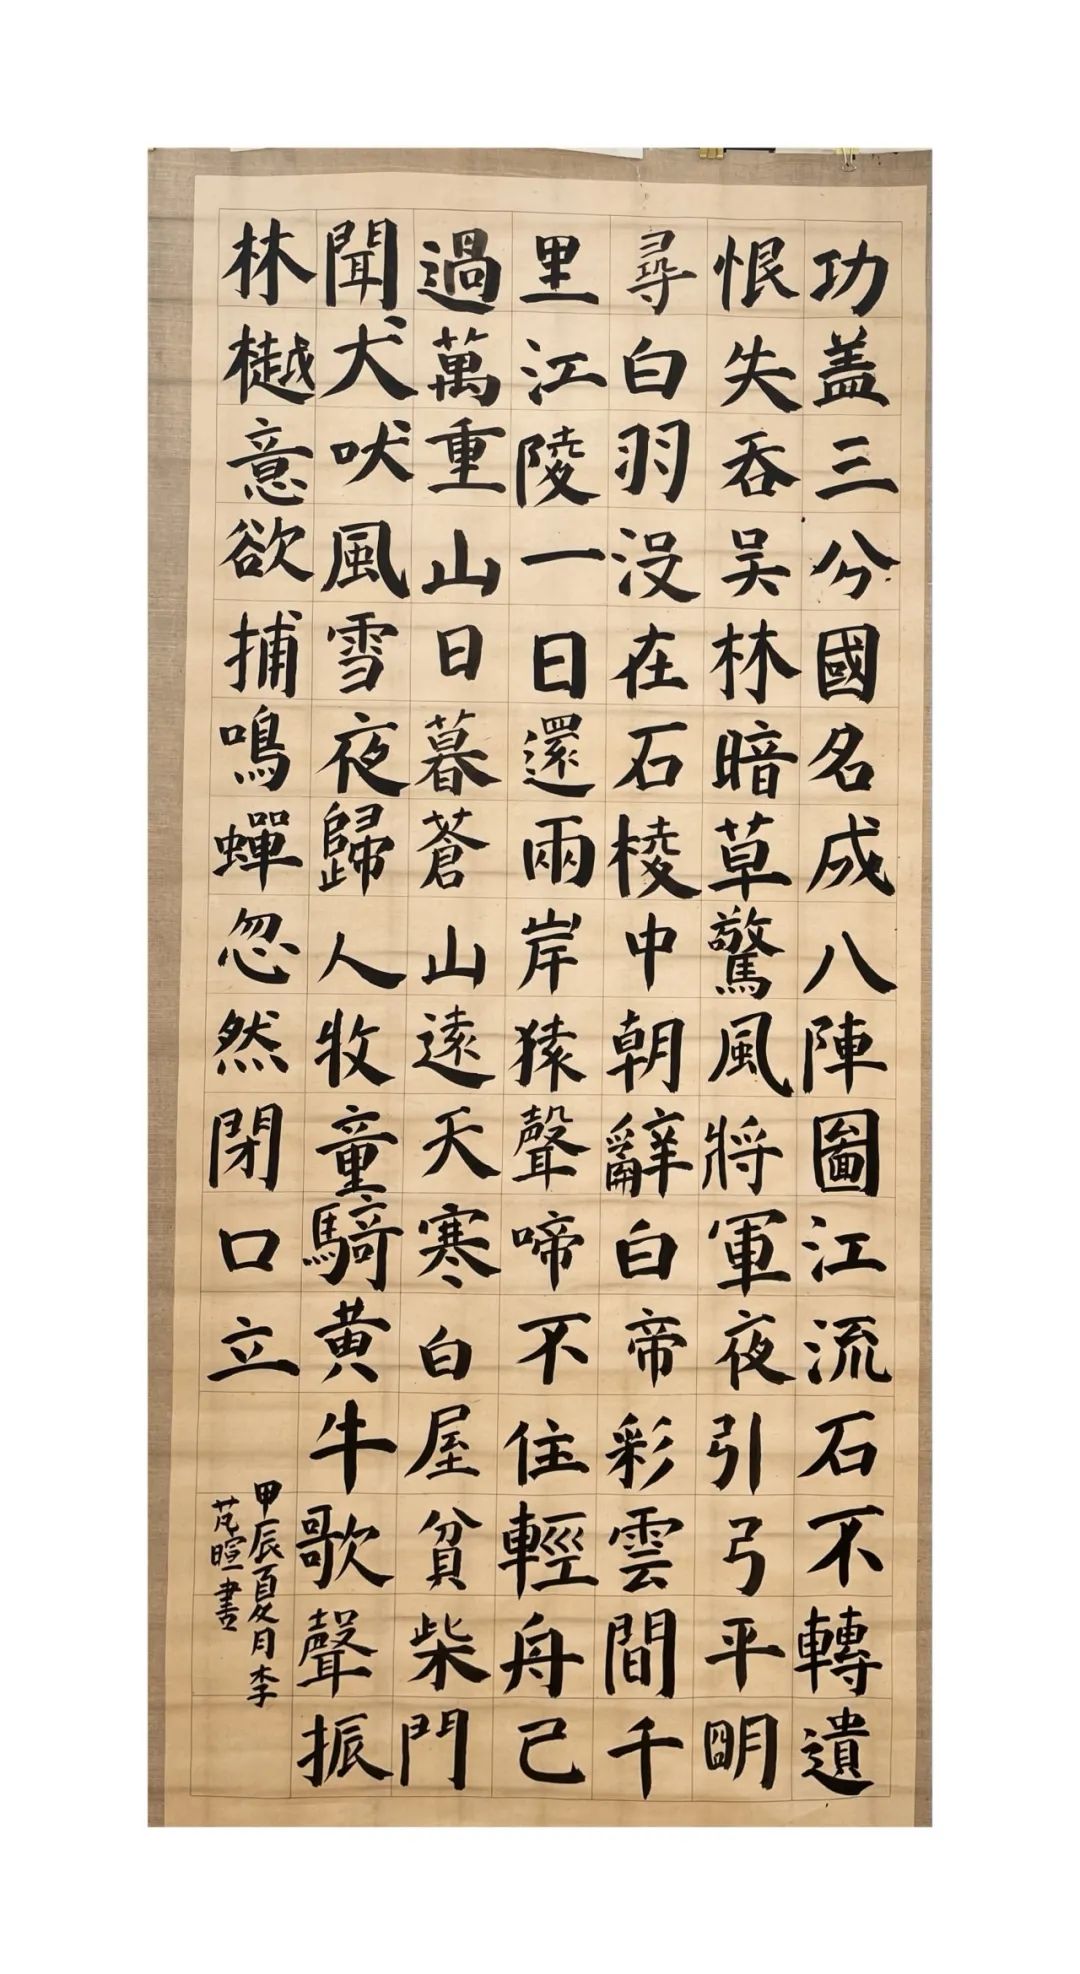 功盖三分國名成八陣圖江流石不轉遺
恨失吞吴林暗草驚風將軍夜引弓平明
尋白羽没在石棱中朝辭白帝彩雲間千
里江陵一日還兩岸猿聲啼不住輕舟已
過萬重山日暮蒼山遠天寒白屋貧柴門
聞犬吠風雪夜歸人牧童騎黄牛歌聲振
林樾意欲捕鳴蟬忽然閉口立
甲辰夏月李
芃暄書